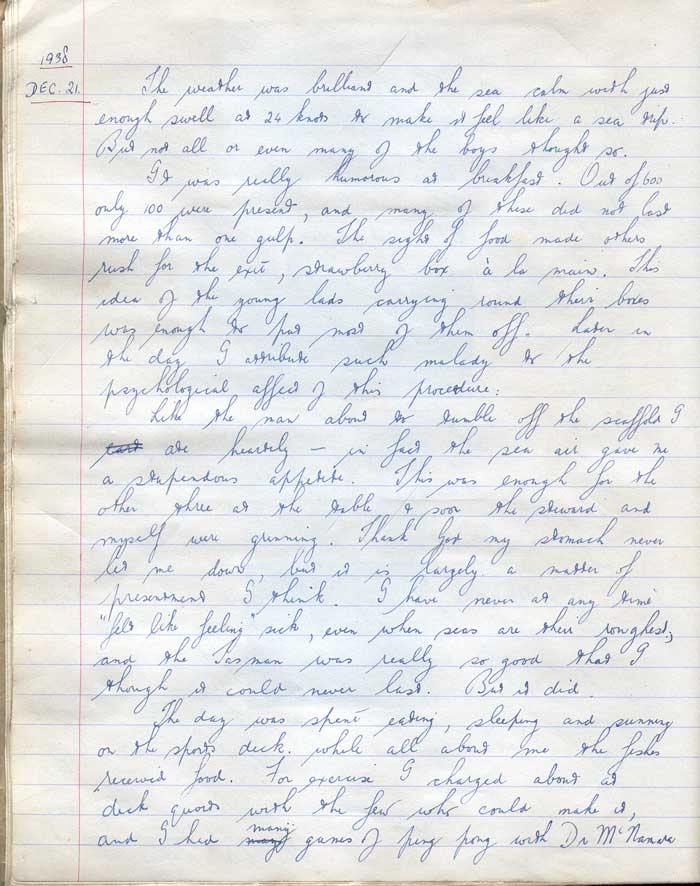 1938
DEC. 21.
The weather was brilliant and the sea calm with just
enough swell at 24 knots to make it feel like a sea trip.
But not all or even many of the boys thought so.
It was really humorous at breakfast. Out of 600
only 100 were present, and many of these did not last
more than one gulp. The sight of food made others
rush for the exit, strawberry box à la main. This
idea of the young lads carrying round their boxes
was enough to put most of them off. Later in
the day I attribute such malady to the
psychological affect of this procedure:
Like the man about to tumble off the scaffold I
ate heartely – in fact the sea air gave me
a stupendous appetite. This was enough for the
other three at the table & soon the steward and
myself were grinning. Thank God my stomach never
let me down, but it is largely a matter of
presentment I think. I have never at any time
"felt like feeling" sick, even when seas are their roughest;
and the Tasman was really so good that I
though it could never last. But it did.
The day was spent eating, sleeping and sunning
on the sports deck. while all about me the fishes
received food. For exercise I charged about at
deck quoits with the few who could make it,
and I had many games of ping pong with Dr McNamara